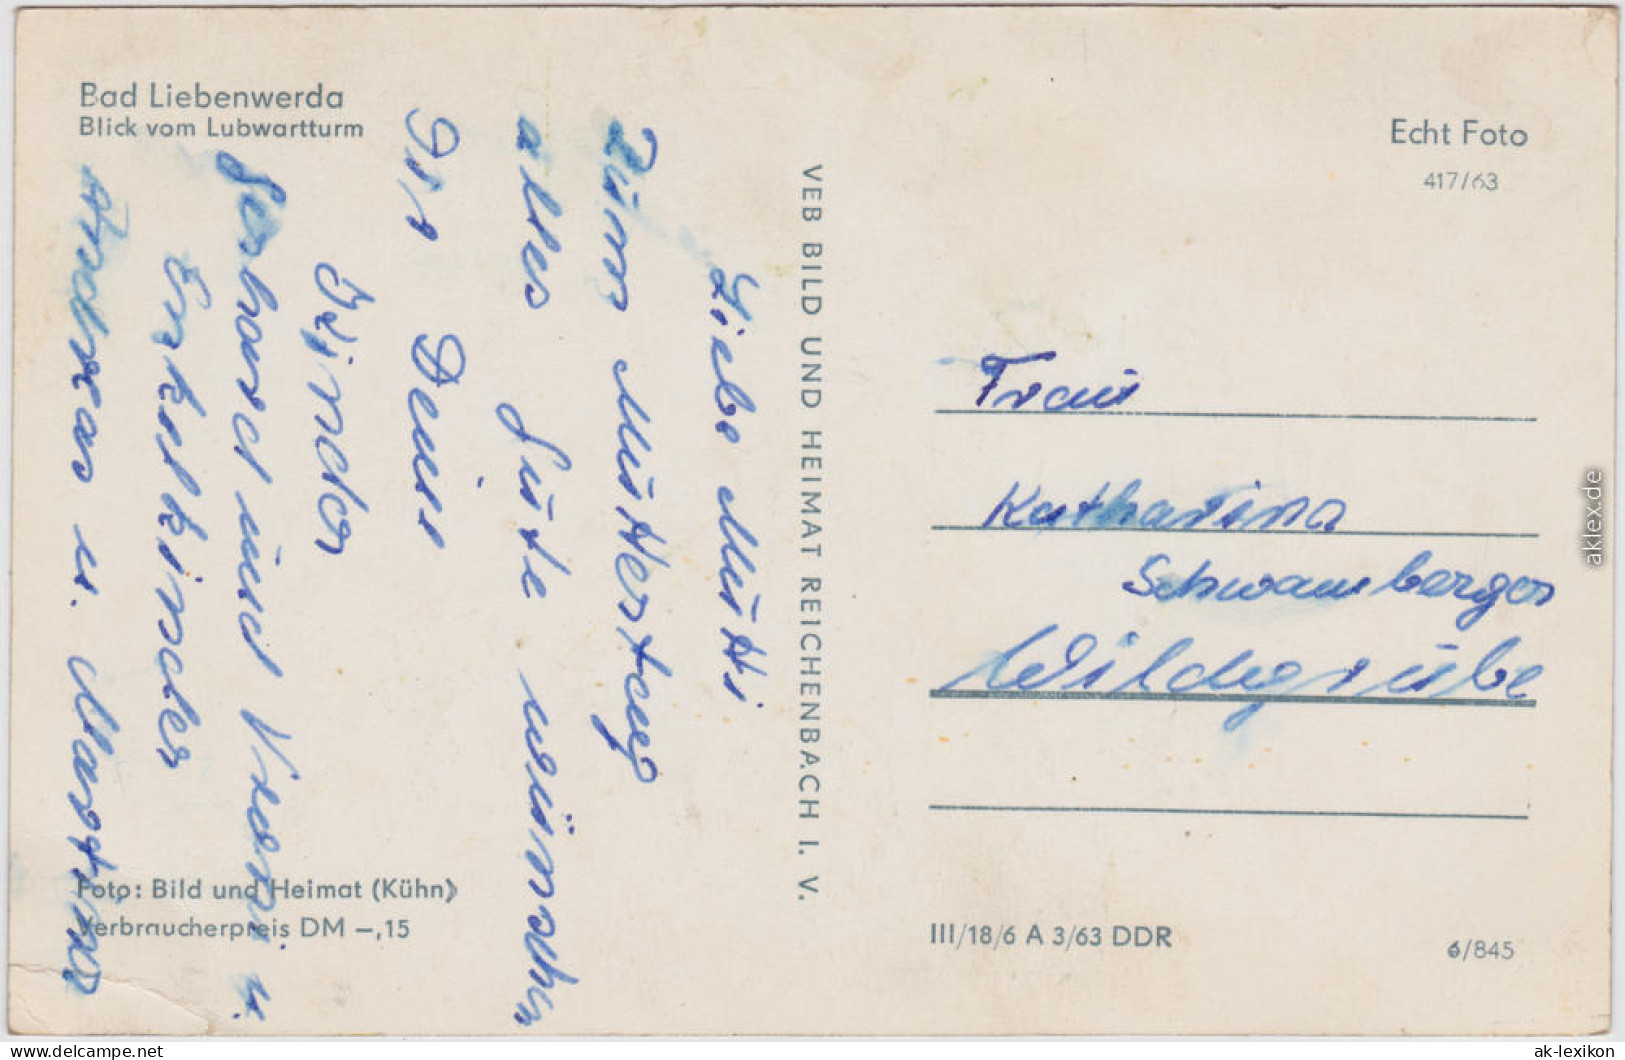 Bad Liebenwerda
Blick vom Lubwartturm
Liebe Mutti
Zum Muttertag
alles Gute wünschen
Dir Deine
Kinder
Gerhard und Vroni u.
Enkelkinder
Andreas u. Martina
Foto: Bild und Heimat (Kühn)
Verbraucherpreis DM –,15
VEB BILD UND HEIMAT REICHENBACH I. V.
Echt Foto
417/63
Frau
Katharina
Schwamberger
Wildgrube
III/18/6 A 3/63 DDR
6/845
aklex.de
www.delcampe.net
ak-lexikon